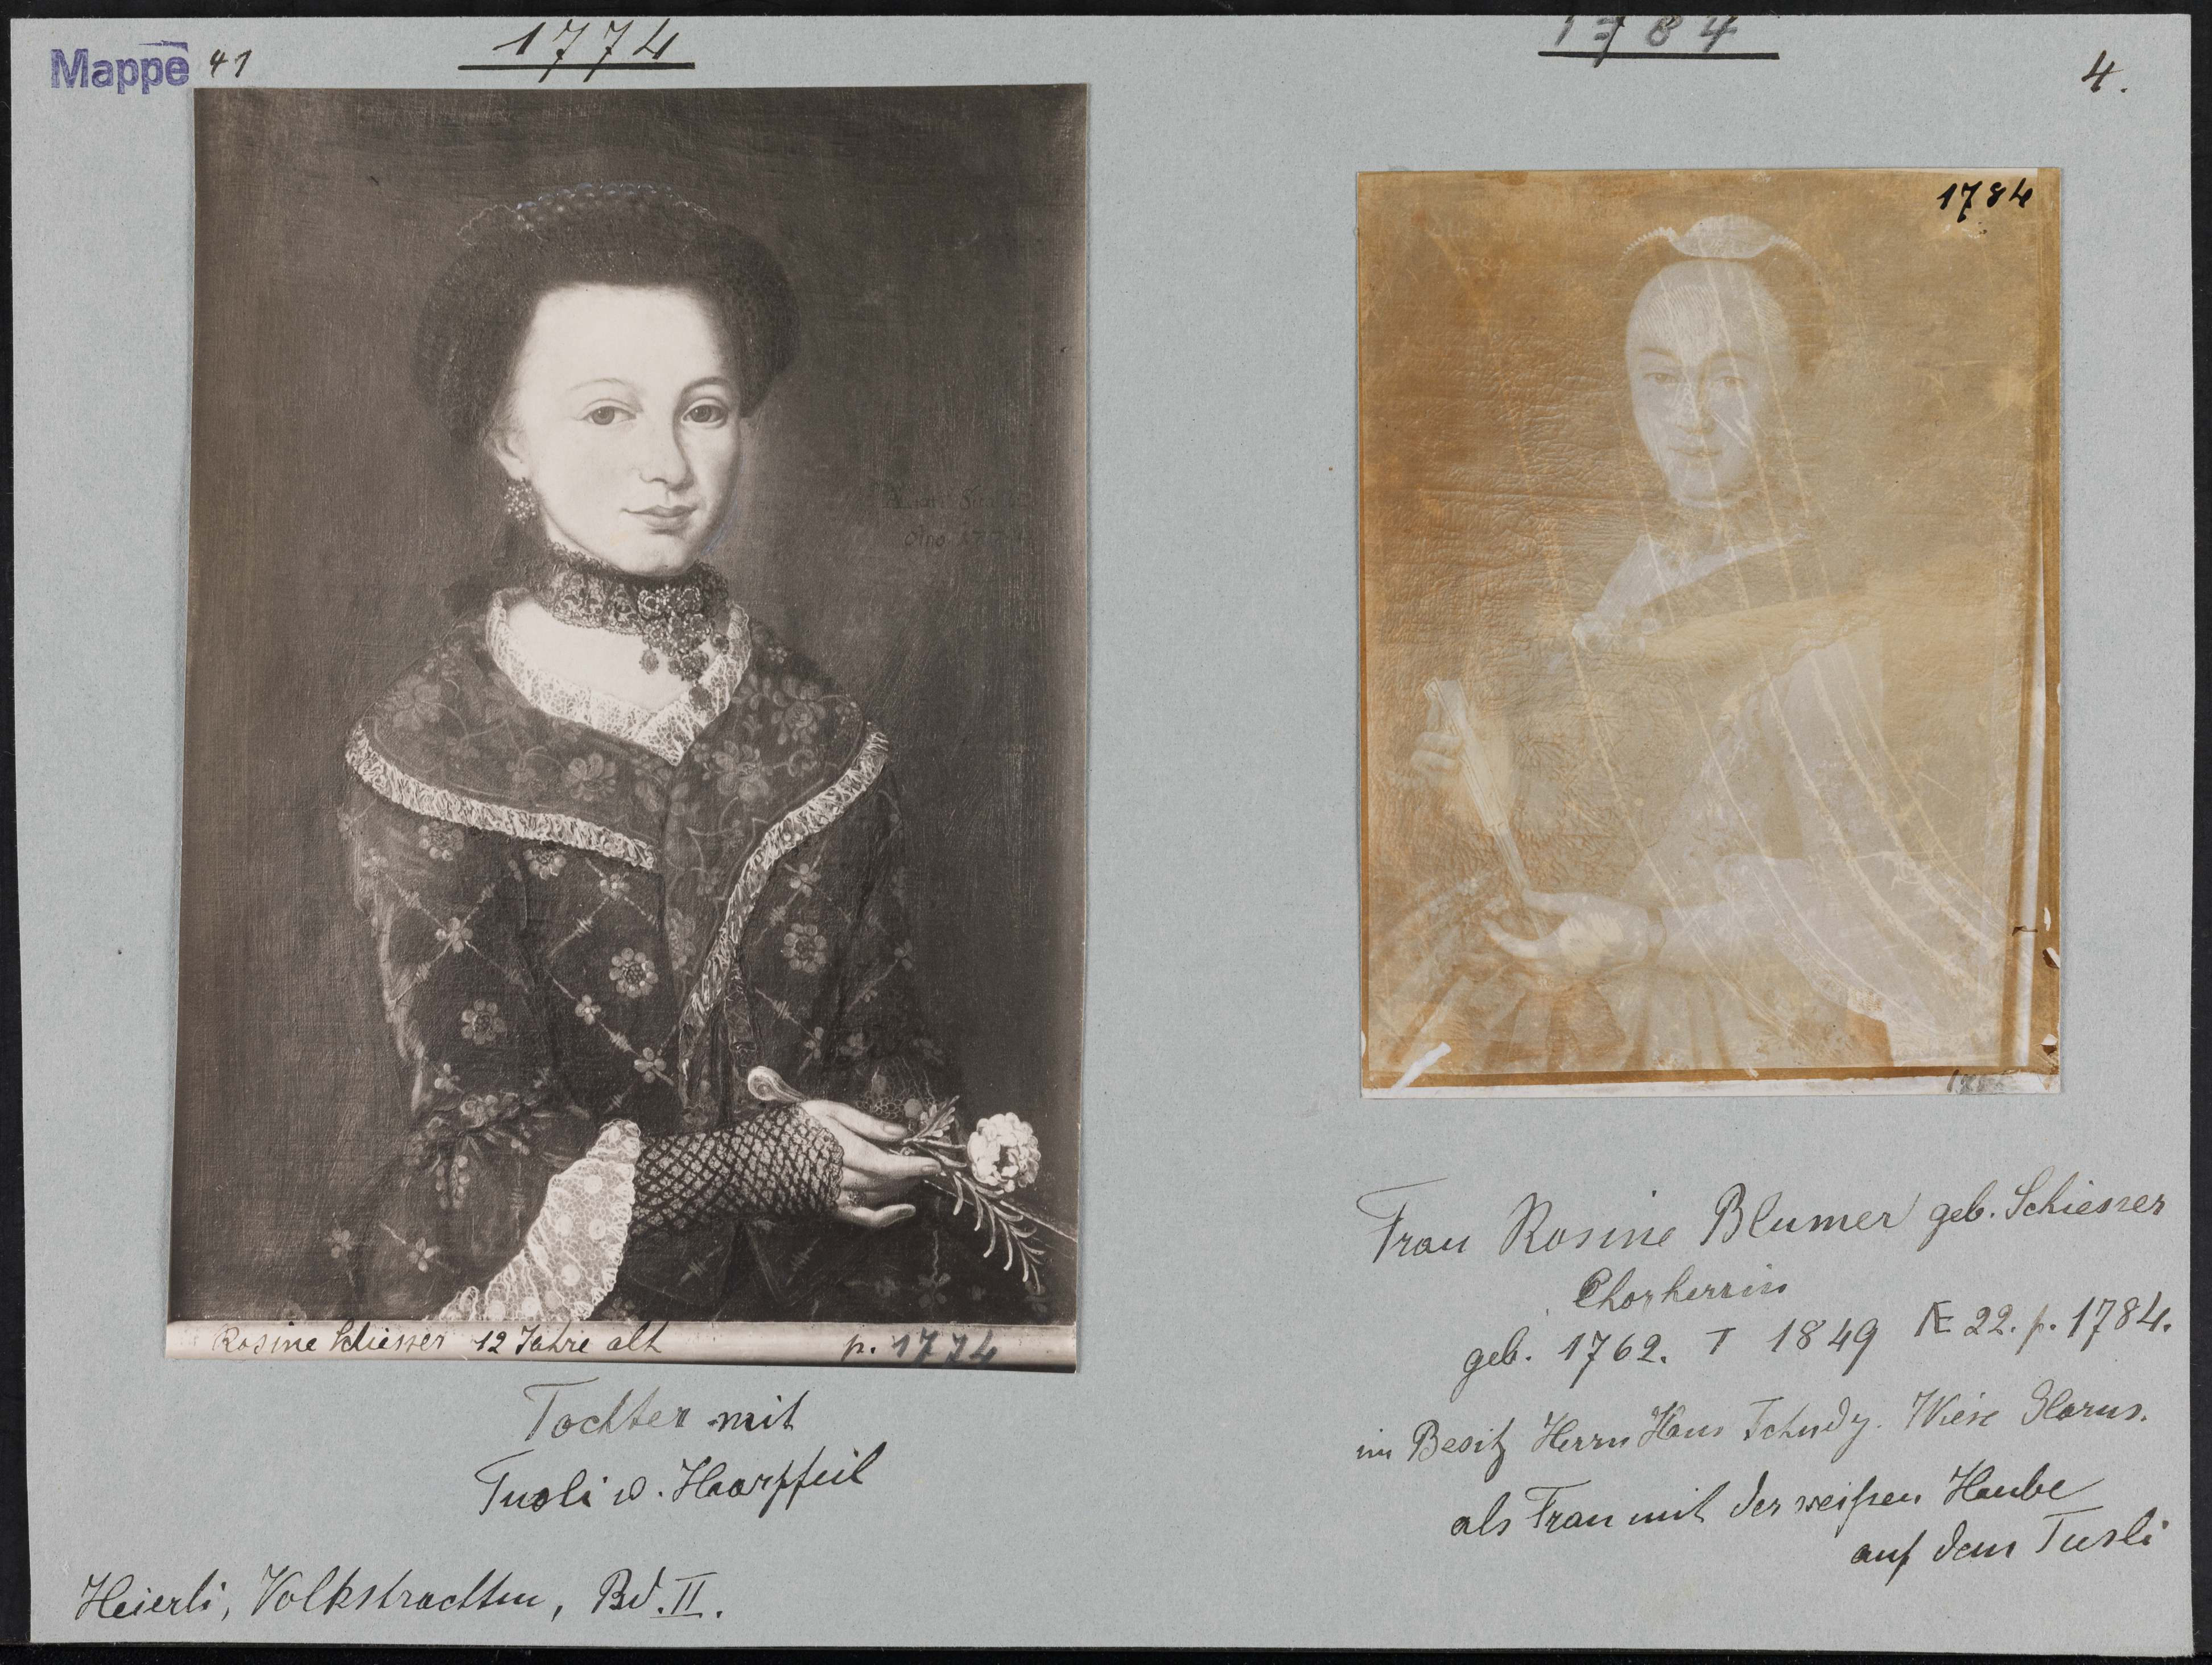 Mappe 41
1774
1784
4.
1784
Ætatis
Ano 1774
Rosine Schiesser 12 Jahre alt p. 1774
Tochter mit
Tusli u. Haarpfeil
Heierli, Volkstrachten, Bd. II.
Frau Rosine Blumer geb. Schiesser
Chorherrin
geb. 1762. † 1849 Æ 22. p. 1784.
im Besitz Herrn Hans Tschudy. Wiese Glarus.
als Frau mit der weißen Haube
auf dem Tusli